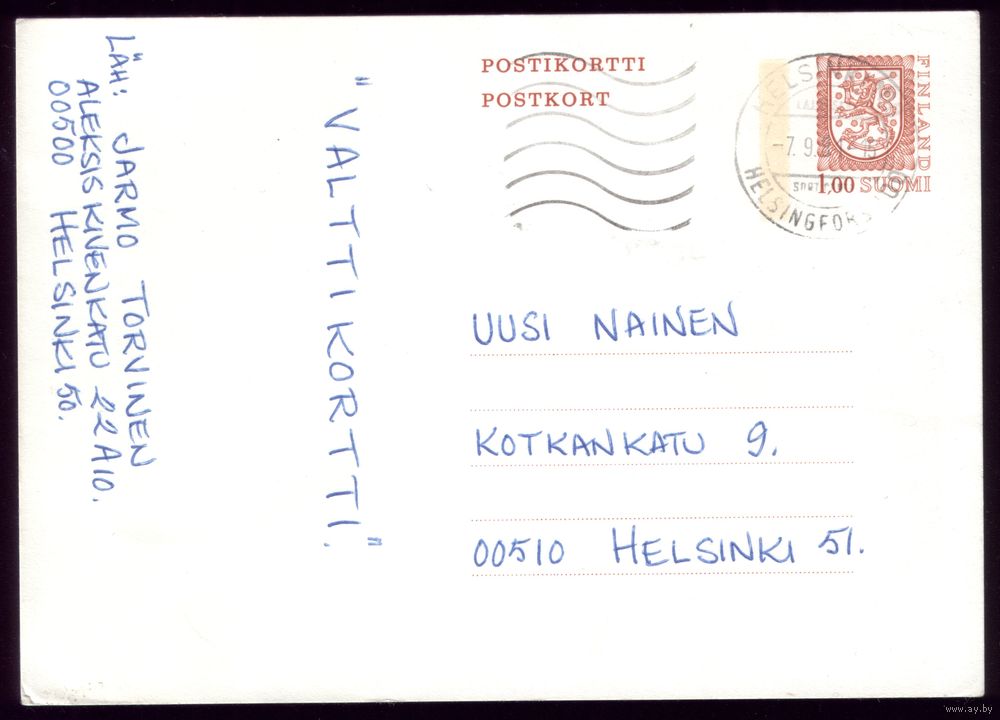 LÄH: JARMO TORVINEN
ALEKSIS KIVENKATU 22 A 10.
00500 HELSINKI 50.
"VALTTIKORTTI."
POSTIKORTTI
POSTKORT
HELSINGFORS
-7.9.
FINLAND
1,00 SUOMI
UUSI NAINEN
KOTKANKATU 9.
00510 HELSINKI 51.
www.ay.by